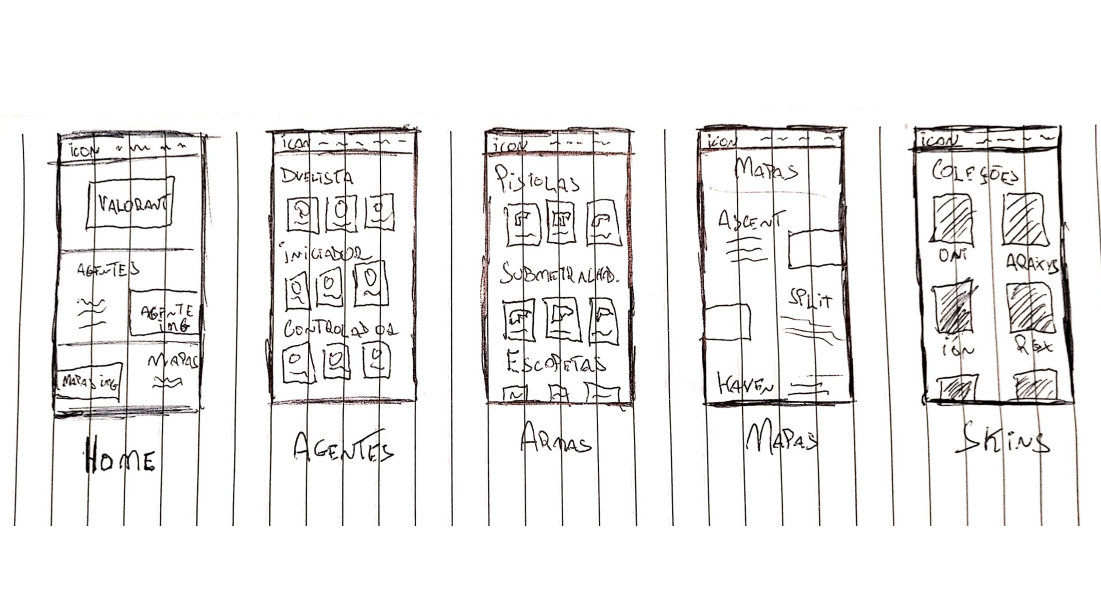 iCON
VALORANT
AGENTES
AGENTE
iMG
MAPAS
MAPAS iMG
HOME
iCON
DUELISTA
iNiCiADOR
CONTROLADOR
AGENTES
iCON
PISTOLAS
SUBMETRALHAD.
ESCOPETAS
ARMAS
iCON
MAPAS
ASCENT
SPLiT
HAVEN
MAPAS
iCON
COLEÇÕES
ONi
ARAXYS
iON
RGX
SKiNS